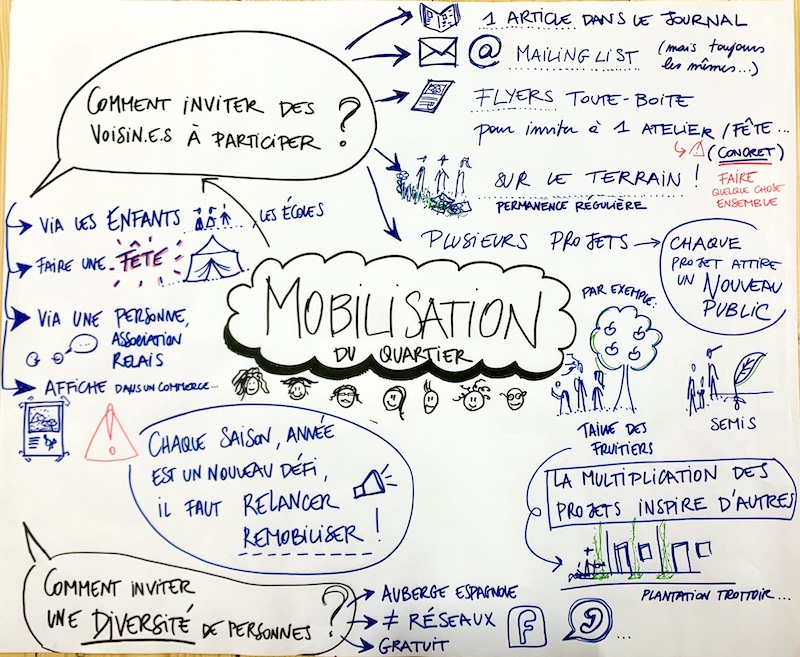 COMMENT INVITER DES
VOISIN.E.S À PARTICIPER ?
1 ARTICLE DANS LE JOURNAL
@ MAILING LIST
(mais toujours
les mêmes...)
FLYERS TOUTE-BOITE
pour inviter à 1 ATELIER/FÊTE...
(CONCRET)
FAIRE
QUELQUE CHOSE
ENSEMBLE
SUR LE TERRAIN !
PERMANENCE RÉGULIÈRE
PLUSIEURS PROJETS
CHAQUE
PROJET ATTIRE
UN NOUVEAU
PUBLIC
VIA LES ENFANTS, LES ÉCOLES
FAIRE UNE FÊTE
VIA UNE PERSONNE,
ASSOCIATION
RELAIS
AFFICHE DANS UN COMMERCE...
MOBILISATION
DU QUARTIER
PAR EXEMPLE:
TAILLE DES
FRUITIERS
SEMIS
CHAQUE SAISON, ANNÉE
EST UN NOUVEAU DÉFI,
IL FAUT RELANCER
REMOBILISER !
LA MULTIPLICATION DES
PROJETS INSPIRE D'AUTRES
PLANTATION TROTTOIR...
COMMENT INVITER
UNE DIVERSITÉ DE PERSONNES ?
AUBERGE ESPAGNOLE
≠ RÉSEAUX
F
...
GRATUIT